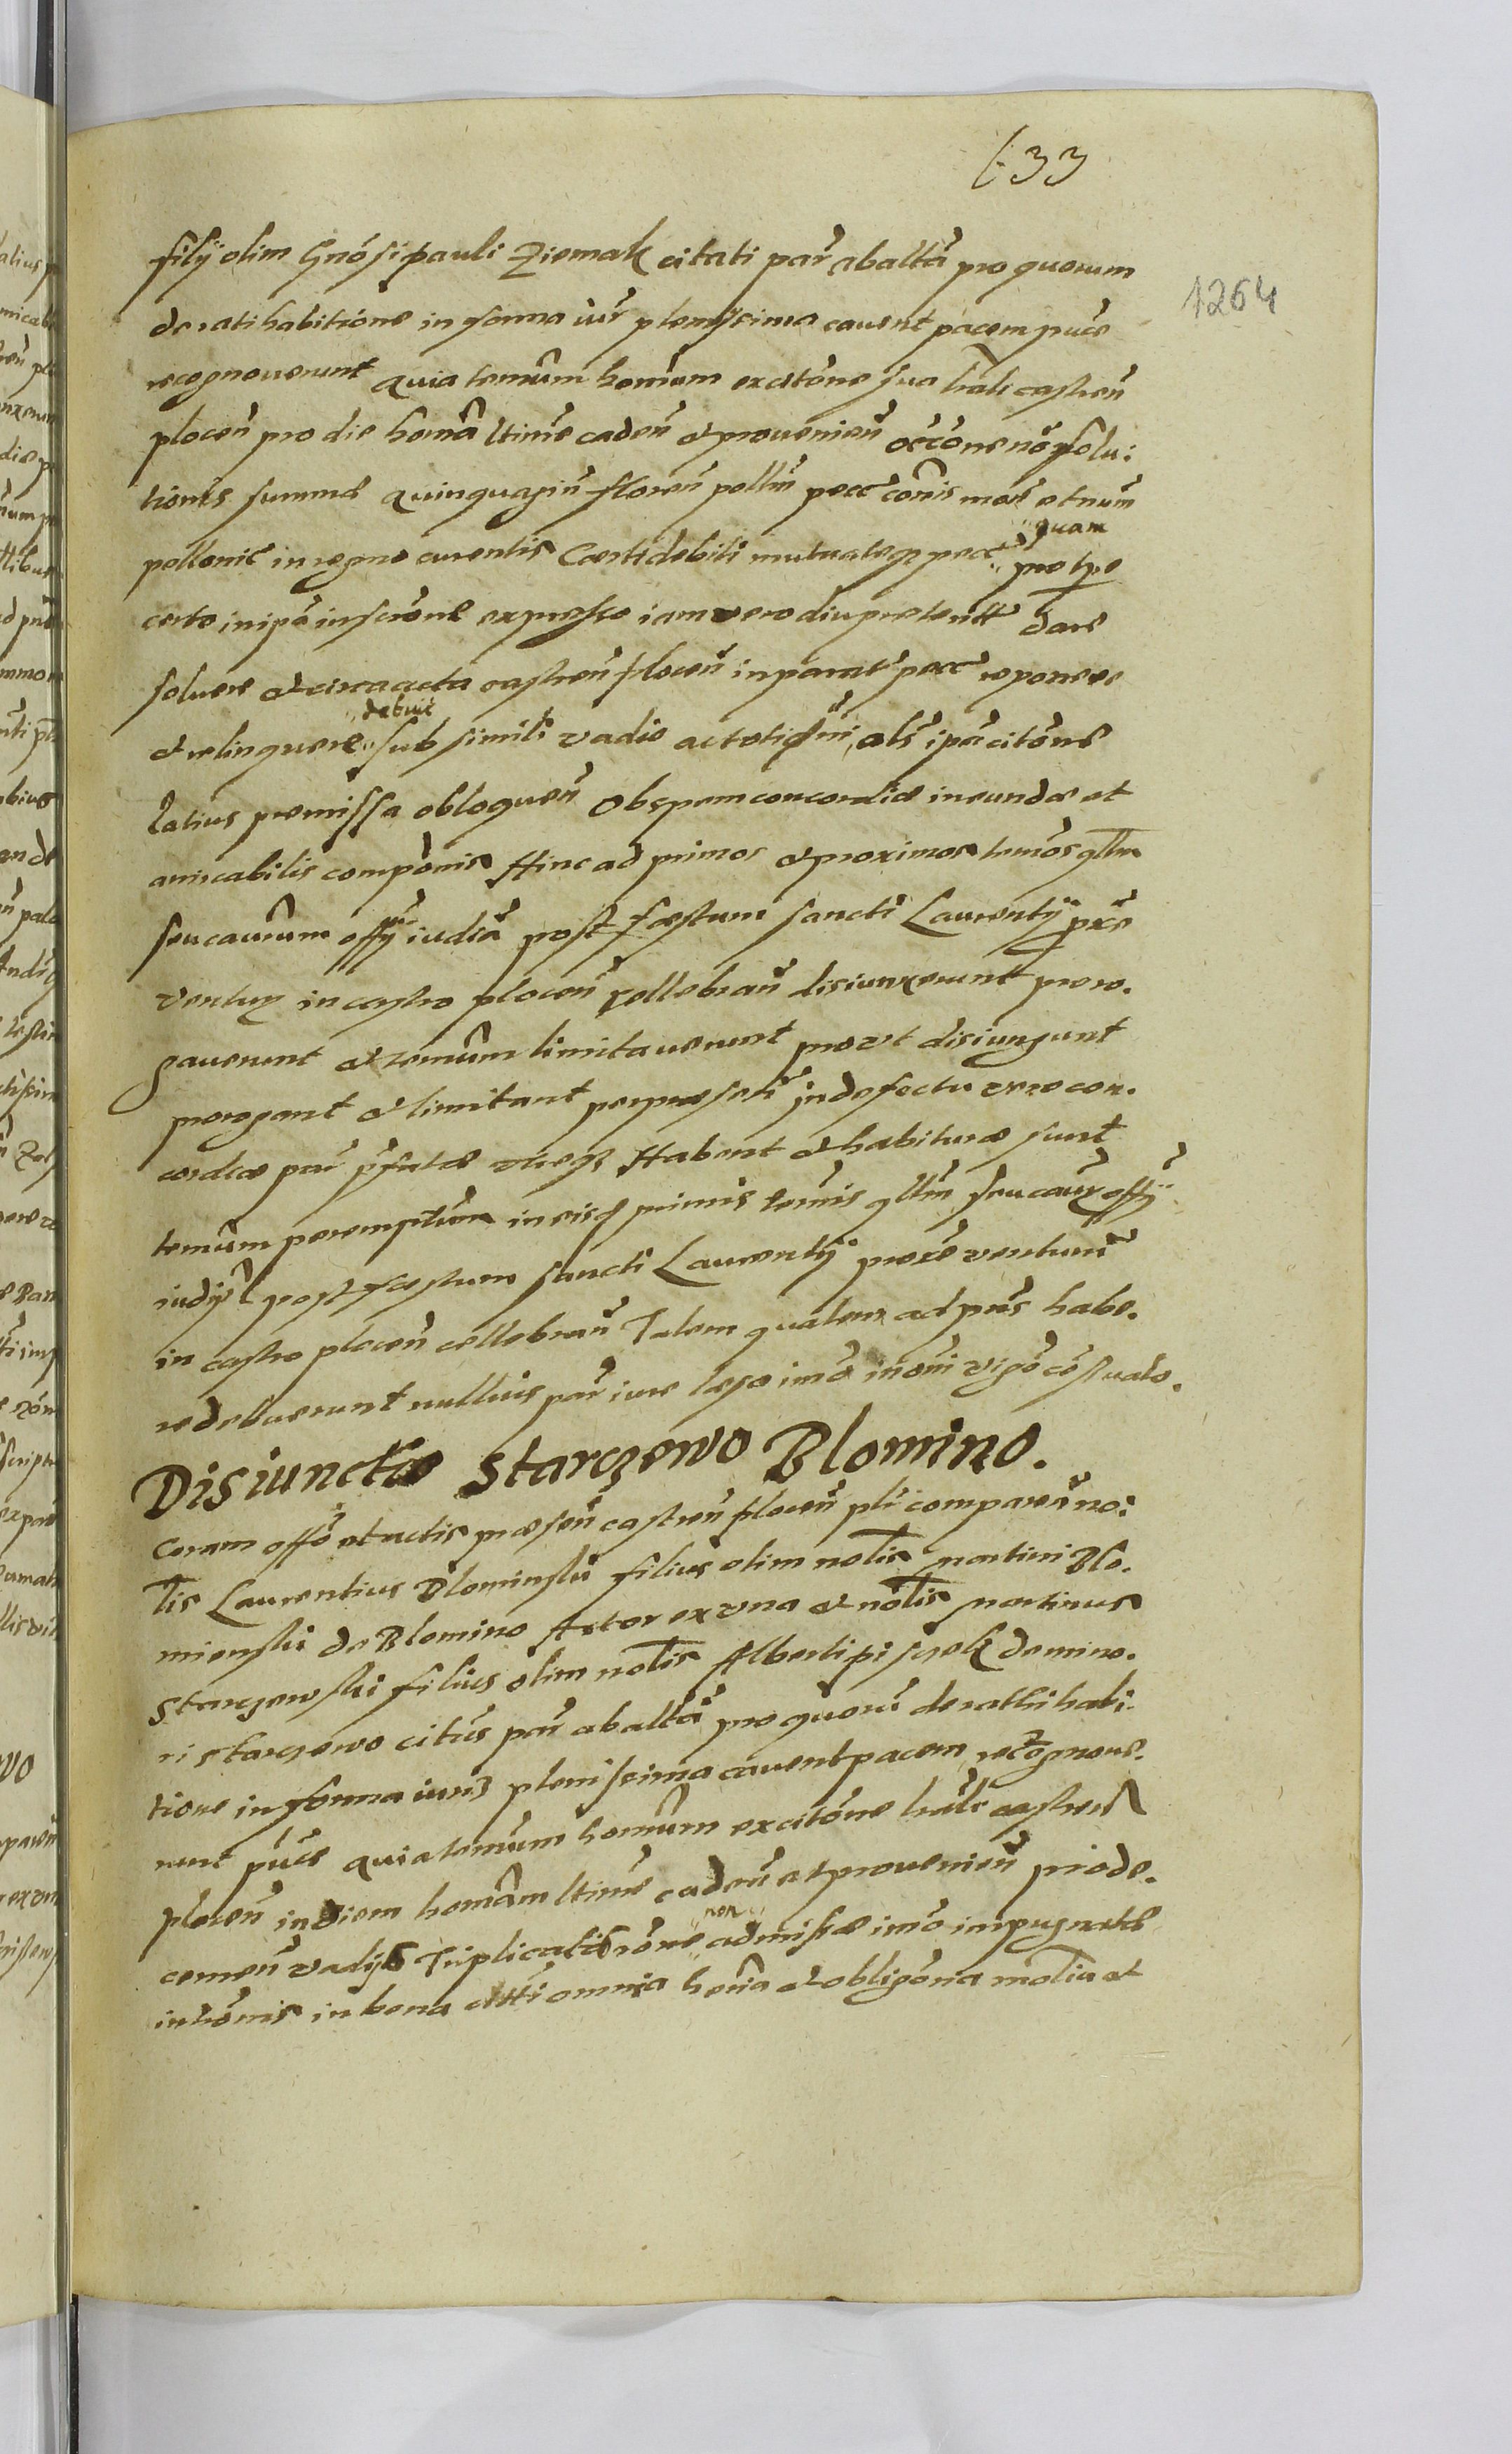 133
1264
filÿ olim Gnosi pauli Ziemak citati par̃ ab alt̃a pro quorum
de ratihabitione in forma iur̃ plenissima cavent pacem pure
recognoverunt Quia termũm hornũm ex citõne sua lrãli castreñ
plocen̄ pro die hornã ltime caden̄ et provenien̄ occõne nõ solu:
tionis summæ quinquagin̄ floren̄ pollñ pecc conis mon̄ et num̃
pollonic in regno curentis Certi debiti mutuateqz pecc quam pro tp̃e
certo in ipã inscrõne expresso iam vero diu preterit dare
solvere et circa acta castren̄ plocen̄ in parat pecc reponere
et relinquere debuit sub simili vadio ac totiq̃ni als ipã citõne
latius premissa obloquen̄ Ob spem concordiæ ineundæ et
amicabilis componis Hinc ad primos et proximos termõs qllm
seu caurum offÿ iudiã post festum sancti Laurentÿ prõe
ventuz in castro plocen̄ cellebran̄ disiunxerunt proro.
gaverunt et termũm limitaverunt prout disiungunt
prorogant et limitant per præsen̄ In defectu vero con.
cordiæ par̃ p̃fatæ vtreqz Habent et habituræ sunt
termũm peremptum in eisd̃ primis termis qllm seu caur̃ offÿ
iudÿ post festum sancti Laurentÿ proxe ventur̃
in castro plocen̄ cellebran̄ Talem qualem ad pñs habe.
re debuerunt nullius par̃ iure læso imõ in omi vigõ cõsvato.
Disiunctio Starczewo Blomino.
Coram offõ et actis præsen̄ castren̄ plocen̄ plr comparen̄ no:
lis Laurentius Blominski filius olim nolis martini Blo.
mienski de Blomino Actor ex vna et nolis martinus
Starczewski filius olim nolis Alberti pisczek de mino.
ri starczewo citus par̃ ab altã pro quorũ de rathi habi.
tione in forma iuris plenissima cavent pacem recognove.
runt pure Quia termũm hornũm ex citõne lrãli castren̄
plocen̄ in diem hornãm ltime caden̄ et provenien̄ prode.
cernen̄ vadÿs Triplicatis rõne non admissæ imõ impugnatæ
intrõmis in bona citti omnia heria et obligõria motia et